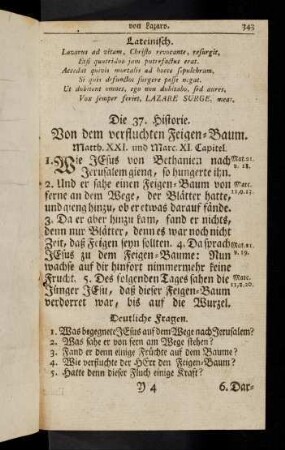 von Lazaro. 343
Lateinisch.
Lazarus ad vitam, Christo revocante, resurgit,
Etsi quatriduo jam putrefactus erat.
Accedat quivis mortalis ad hocce sepulchrum,
Si quis defunctos surgere posse negat.
Ut dubitent omnes, ego non dubitabo, sed aures,
Vox semper feriet, LAZARE SURGE, meas.
Die 37. Historie.
Von dem verfluchten Feigen-Baum.
Matth. XXI. und Marc. XI. Capitel.
1. Wie JEsus von Bethanien nach Mat. 21.
Jerusalem gieng, so hungerte ihn. v. 18.
2. Und er sahe einen Feigen-Baum von Marc.
ferne an dem Wege, der Blätter hatte, 11, v. 13.
und gieng hinzu, ob er etwas darauf fände.
3. Da er aber hinzu kam, fand er nichts,
denn nur Blätter, denn es war noch nicht
Zeit, daß Feigen seyn sollten. 4. Da sprach Mat. 21.
JEsus zu dem Feigen-Baume: Nun v. 19.
wachse auf dir hinfort nimmermehr keine
Frucht. 5. Des folgenden Tages sahen die Marc.
Jünger JEsu, daß dieser Feigen-Baum 11, v. 20.
verdorret war, bis auf die Wurzel.
Deutliche Fragen.
1. Was begegnete JEsus auf dem Wege nach Jerusalem?
2. Was sahe er von fern am Wege stehen?
3. Fand er denn einige Früchte auf dem Baume?
4. Wie verfluchte der HErr den Feigen-Baum?
5. Hatte denn dieser Fluch einige Kraft?
Y 4 6. Dar-